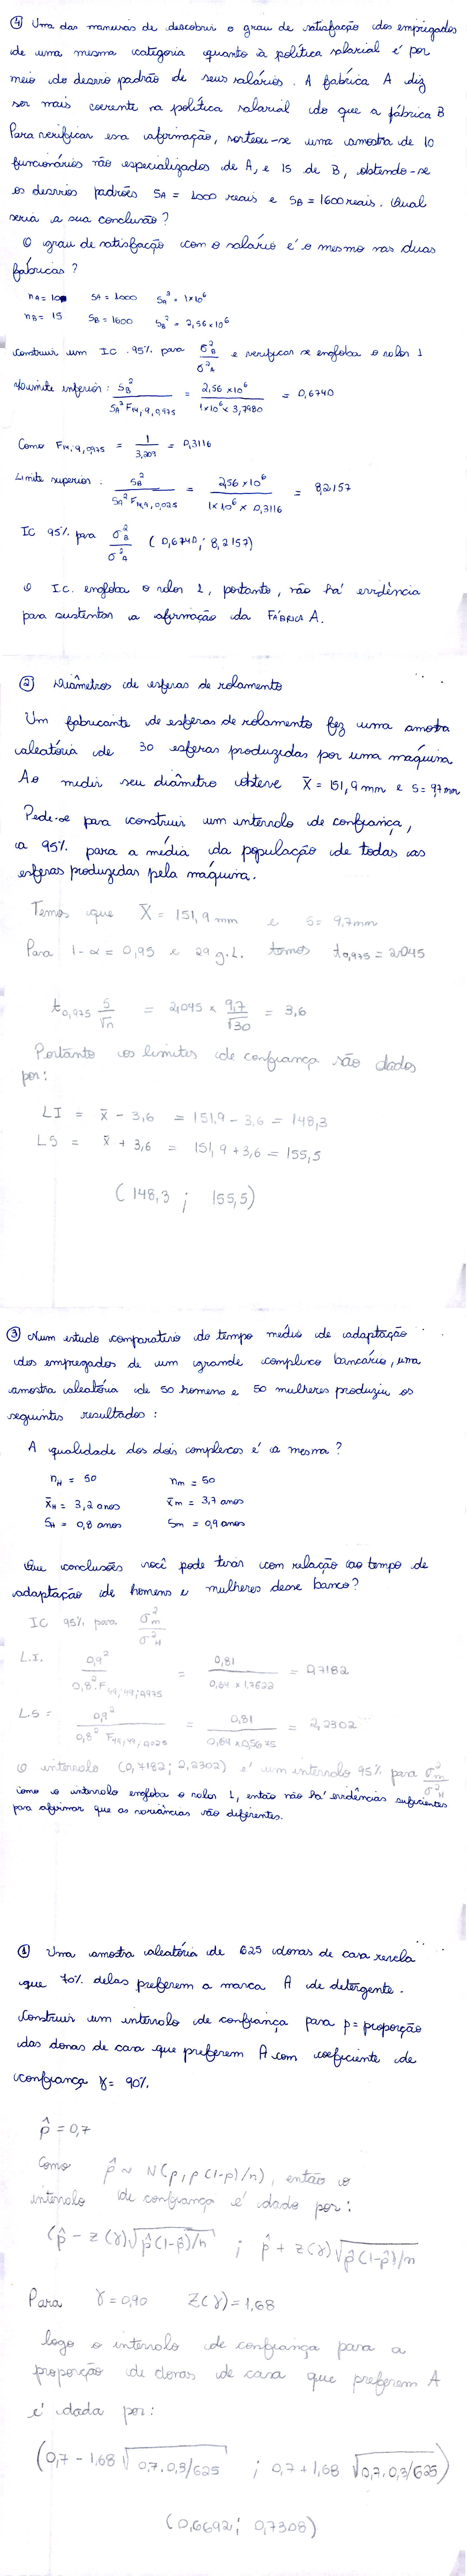 ④ Uma das maneiras de descobrir o grau de satisfação dos empregados
de uma mesma categoria quanto à política salarial é por
meio do desvio padrão de seus salários. A fábrica A diz
ser mais coerente na política salarial do que a fábrica B
Para verificar essa afirmação, sorteou-se uma amostra de 10
funcionários não especializados de A, e 15 de B, obtendo-se
os desvios padrões SA = 1000 reais e SB = 1600 reais. Qual
seria a sua conclusão?
O grau de satisfação com o salário é o mesmo nas duas
fábricas?
nA = 10 SA = 1000 SA² = 1×10⁶
nB = 15 SB = 1600 SB² = 2,56×10⁶
Construir um IC 95% para σ²B/σ²A e verificar se engloba o valor 1
Limite inferior: SB²/(SA² F14,9,0,975) = 2,56×10⁶/(1×10⁶×3,7980) = 0,6740
Como F14;9;0,975 = 1/3,209 = 0,3116
Limite superior: SB²/(SA² F14,9,0,025) = 2,56×10⁶/(1×10⁶×0,3116) = 8,2157
IC 95% para σ²B/σ²A (0,6740; 8,2157)
O I.C. engloba o valor 1, portanto, não há evidência
para sustentar a afirmação da FÁBRICA A.
② Diâmetros de esferas de rolamento
Um fabricante de esferas de rolamento fez uma amostra
aleatória de 30 esferas produzidas por uma maquina
Ao medir seu diâmetro obteve X̄ = 151,9 mm e S = 9,7 mm
Pede-se para construir um intervalo de confiança,
a 95% para a média da população de todas as
esferas produzidas pela máquina.
Temos que X̄ = 151,9 mm e S = 9,7 mm
Para 1-α = 0,95 e 29 g.L. temos t0,975 = 2,045
t0,975 S/√n = 2,045 × 9,7/√30 = 3,6
Portanto os limites de confiança são dados
por:
LI = x̄ - 3,6 = 151,9 - 3,6 = 148,3
LS = x̄ + 3,6 = 151,9 + 3,6 = 155,5
(148,3 ; 155,5)
③ Num estudo comparativo do tempo médio de adaptação
dos empregados de um grande complexo bancário, uma
amostra aleatória de 50 homens e 50 mulheres produziu os
seguintes resultados:
A qualidade dos dois complexos é a mesma?
nH = 50 nm = 50
x̄H = 3,2 anos x̄m = 3,7 anos
SH = 0,8 anos Sm = 0,9 anos
Que conclusões você pode tirar com relação ao tempo de
adaptação de homens e mulheres desse banco?
IC 95% para σ²m/σ²H
L.I. 0,9²/(0,8² F49;49;0,975) = 0,81/(0,64 × 1,7622) = 0,7182
LS = 0,9²/(0,8² F49,49,0,025) = 0,81/(0,64 × 0,5675) = 2,2302
O intervalo (0,7182; 2,2302) é um intervalo 95% para σ²m/σ²H
como o intervalo engloba o valor 1, então não há evidências suficientes
para afirmar que as variâncias são diferentes.
① Uma amostra aleatória de 625 donas de casa revela
que 70% delas preferem a marca A de detergente.
Construir um intervalo de confiança para p = proporção
das donas de casa que preferem A com coeficiente de
confiança γ = 90%.
p̂ = 0,7
Como p̂ ~ N(p, p(1-p)/n), então o
intervalo de confiança é dado por:
(p̂ - z(γ)√p̂(1-p̂)/n ; p̂ + z(γ)√p̂(1-p̂)/n
Para γ = 0,90 Z(γ) = 1,68
logo o intervalo de confiança para a
proporção de donas de casa que preferem A
é dada por:
(0,7 - 1,68 √0,7.0,3/625 ; 0,7 + 1,68 √0,7.0,3/625)
(0,6692; 0,7308)